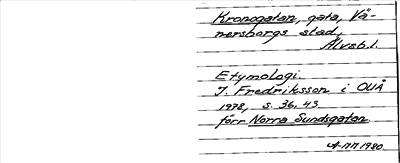 Kronogatan, gata, Vä-
nersborgs stad,
Älvsb.l.
Etymologi
I. Fredriksson i OUÅ
1978, s. 36, 43
förr Norra Sundsgatan.
1980